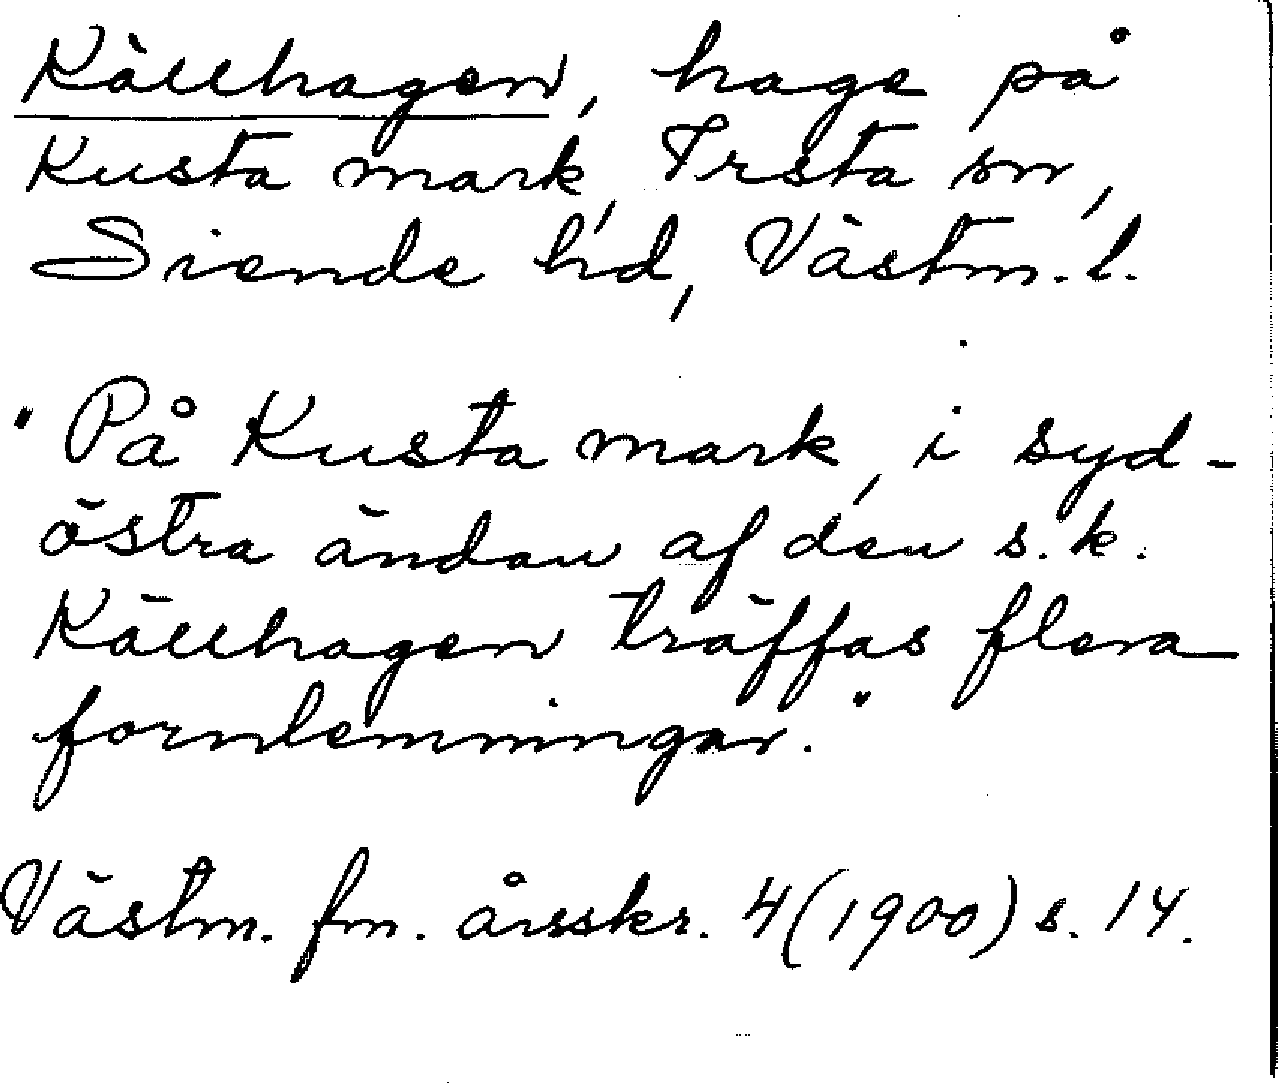 Källhagen, hage på
Kusta mark, Irsta sn,
Siende hd, Västm. l.
"På Kusta mark, i syd-
östra ändan af den s. k.
Källhagen träffas flera
fornlemningar."
Västm. fm. årsskr. 4 (1900) s. 14.